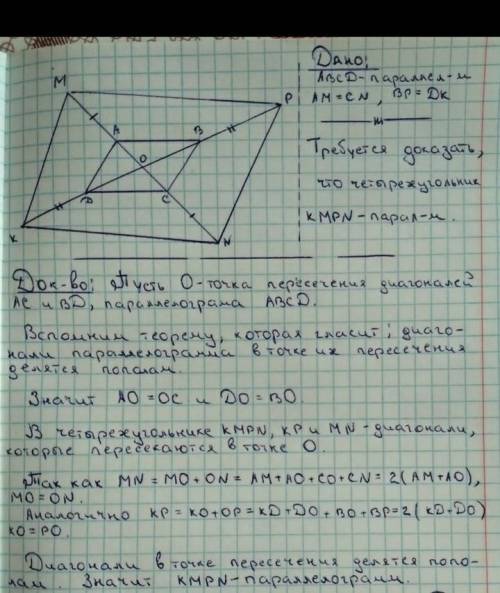 M
P
A
B
O
D
C
K
N
Дано:
ABCD-параллел-м
AM=CN, BP=DK
Требуется доказать,
что четырехугольник
KMPN-парал-м.
Док-во: Пусть O-точка пересечения диагоналей
AC и BD, параллелограма ABCD.
Вспомним теорему, которая гласит; диаго-
нали параллелограмма в точке их пересечения
делятся пополам.
Значит AO=OC и DO=BO.
В четырехугольнике KMPN, KP и MN-диагонали,
которые пересекаются в точке O.
Так как MN=MO+ON=AM+AO+CO+CN=2(AM+AO),
MO=ON.
Аналогично KP=KO+OP=KD+DO+BO+BP=2(KD+DO)
KO=PO.
Диагонали в точке пересечения делятся попо-
лам. Значит KMPN-параллелограмм.